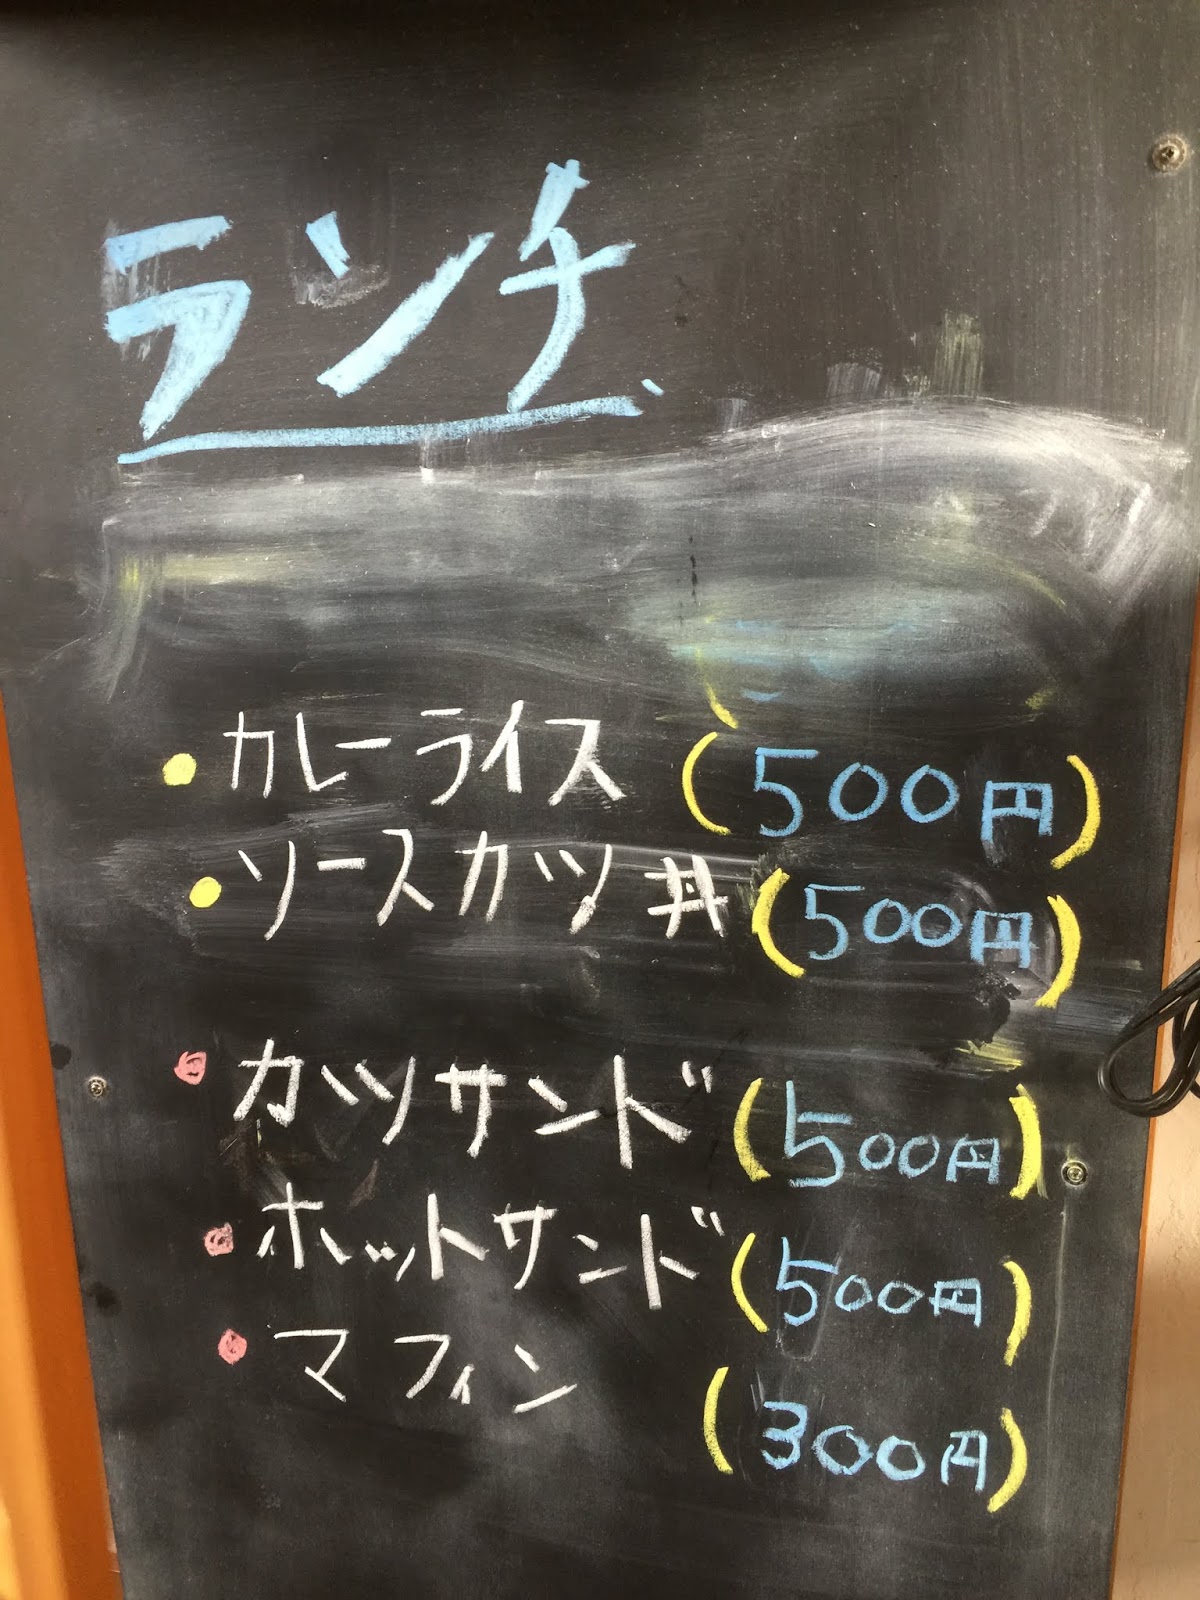 ランチ
・カレーライス (500円)
・ソースカツ丼 (500円)
・カツサンド (500円)
・ホットサンド (500円)
・マフィン (300円)